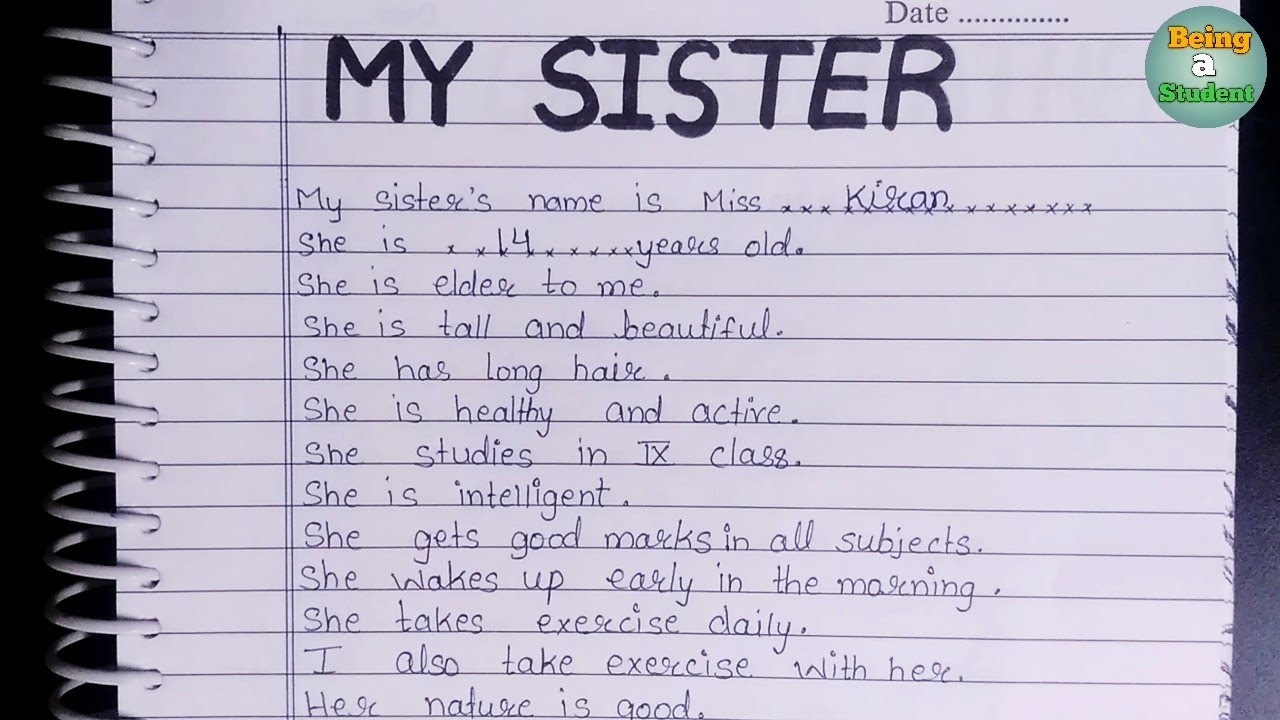 Date ..............
Being
a
Student
MY SISTER
My sister's name is Miss xxx Kiran xxxxxxx
She is x x 14 xxxxx years old.
She is elder to me.
She is tall and beautiful.
She has long hair.
She is healthy and active.
She studies in IX class.
She is intelligent.
She gets good marks in all subjects.
She wakes up early in the morning.
She takes exercise daily.
I also take exercise with her.
Her nature is good.